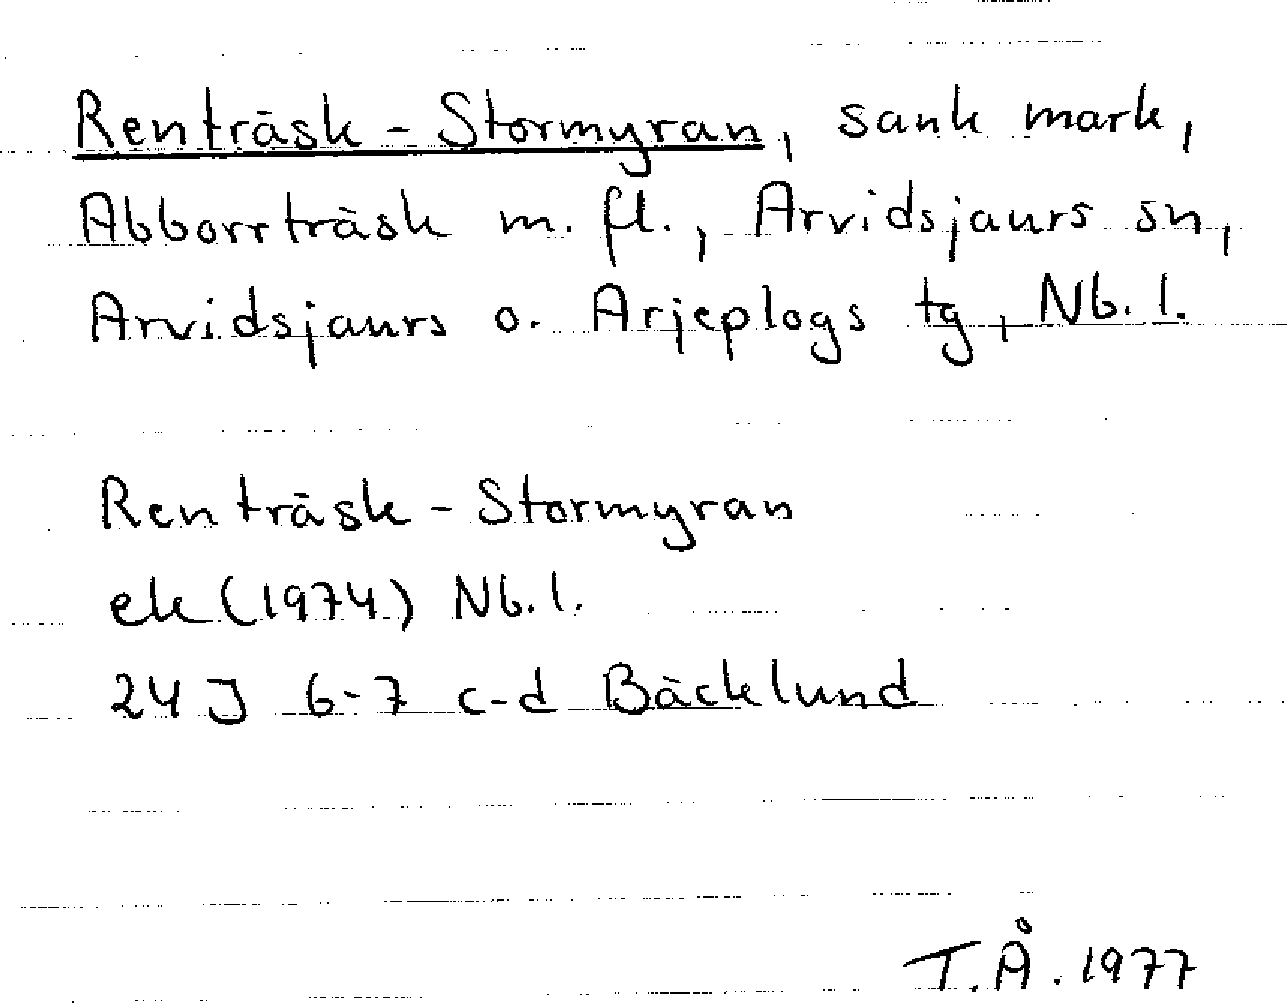 Renträsk - Stormyran, sank mark,
Abborrträsk m. fl., Arvidsjaurs sn,
Arvidsjaurs o. Arjeplogs tg, Nb. l.
Renträsk - Stormyran
ek (1974) Nb. l.
24 J 6-7 c-d Bäcklund
T.Å. 1977